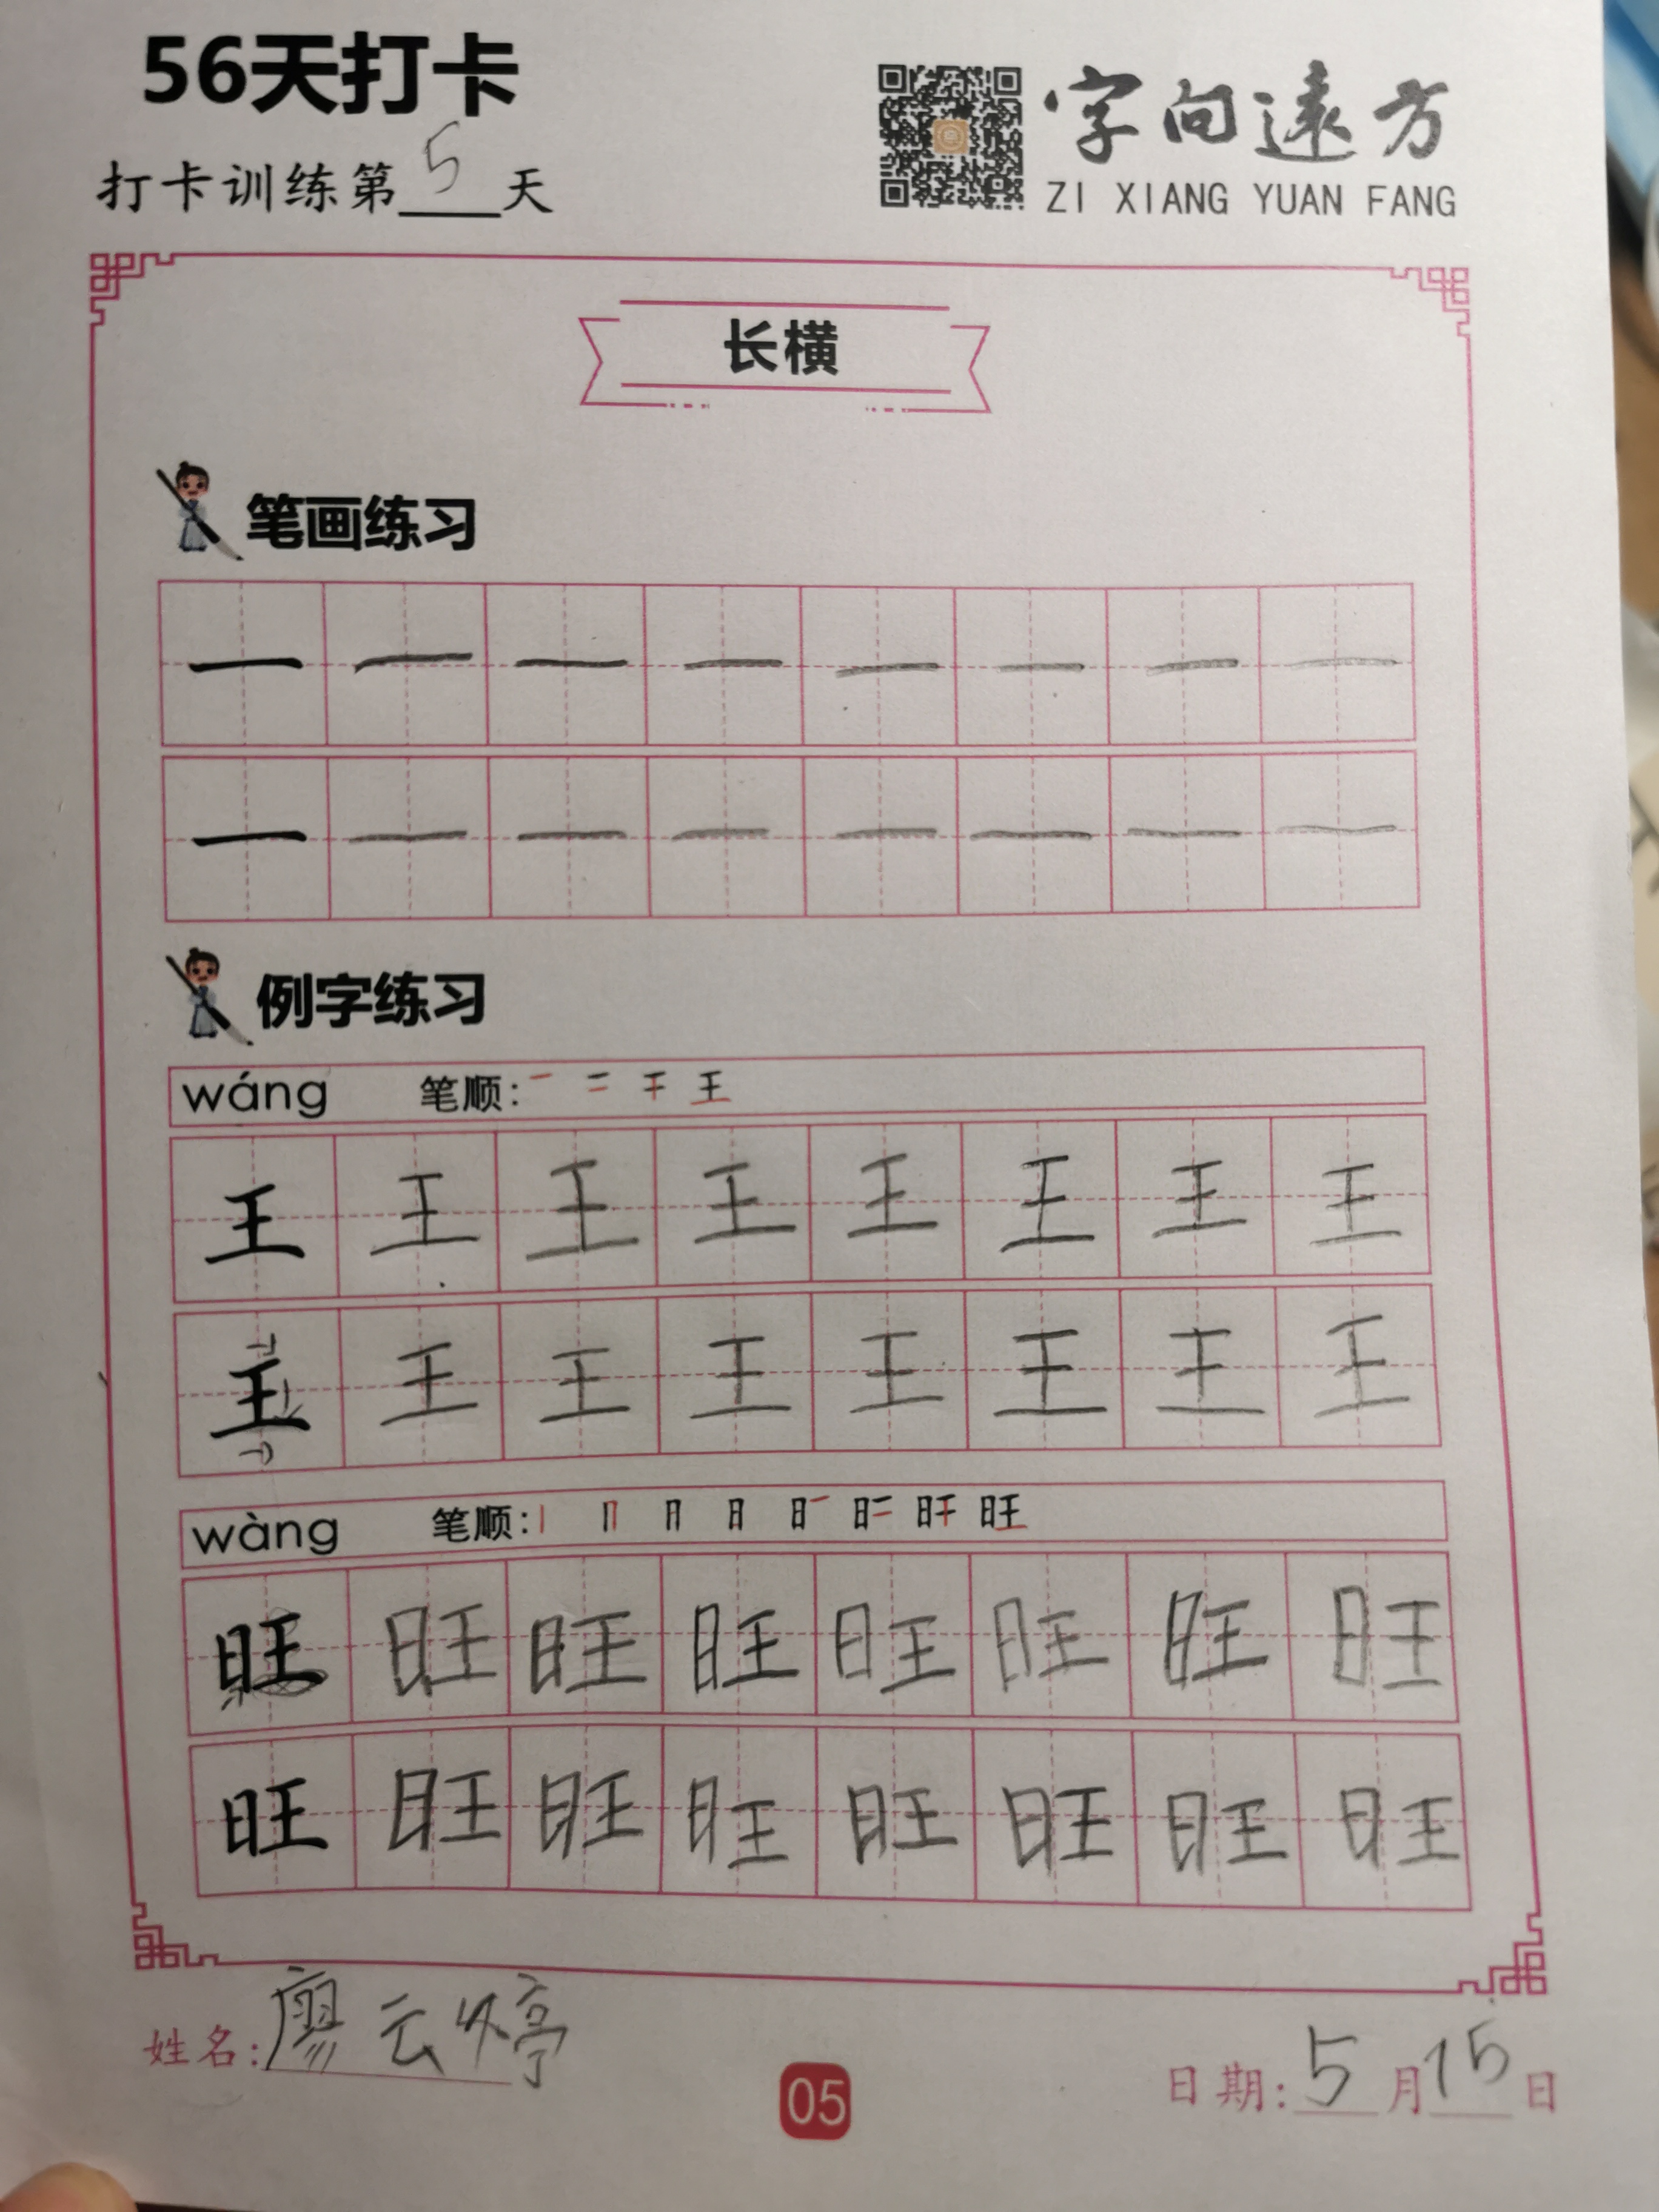 56天打卡
打卡训练第5天
字向遠方
ZI XIANG YUAN FANG
长横
笔画练习
一 一 一 一 一 一 一 一
一 一 一 一 一 一 一 一
例字练习
wáng 笔顺: 一 二 干 王
王 王 王 王 王 王 王 王
王 王 王 王 王 王 王 王
wàng 笔顺: 旺
旺 旺 旺 旺 旺 旺 旺 旺
旺 旺 旺 旺 旺 旺 旺 旺
姓名:廖云婷
05
日期:5月15日